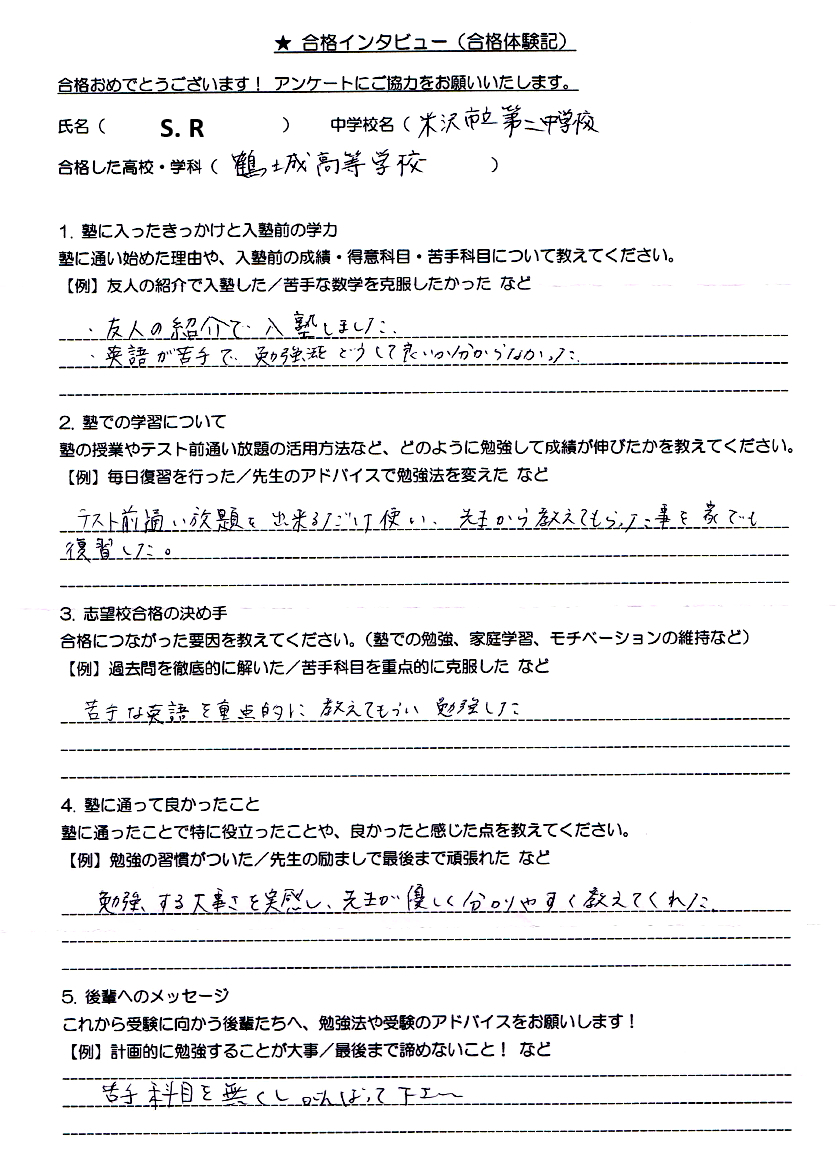 ★ 合格インタビュー（合格体験記）
合格おめでとうございます！ アンケートにご協力をお願いいたします。
氏名（ S. R ） 中学校名（ 米沢市立第二中学校
合格した高校・学科（ 鶴城高等学校 ）
1. 塾に入ったきっかけと入塾前の学力
塾に通い始めた理由や、入塾前の成績・得意科目・苦手科目について教えてください。
【例】友人の紹介で入塾した／苦手な数学を克服したかった など
・友人の紹介で入塾しました。
・英語が苦手で、勉強法どうして良いか分からなかった。
2. 塾での学習について
塾の授業やテスト前通い放題の活用方法など、どのように勉強して成績が伸びたかを教えてください。
【例】毎日復習を行った／先生のアドバイスで勉強法を変えた など
テスト前通い放題を出来るだけ使い、先生から教えてもらった事を家でも
復習した。
3. 志望校合格の決め手
合格につながった要因を教えてください。（塾での勉強、家庭学習、モチベーションの維持など）
【例】過去問を徹底的に解いた／苦手科目を重点的に克服した など
苦手な英語を重点的に教えてもらい勉強した
4. 塾に通って良かったこと
塾に通ったことで特に役立ったことや、良かったと感じた点を教えてください。
【例】勉強の習慣がついた／先生の励ましで最後まで頑張れた など
勉強する大事さを実感し、先生が優しく分かりやすく教えてくれた。
5. 後輩へのメッセージ
これから受験に向かう後輩たちへ、勉強法や受験のアドバイスをお願いします！
【例】計画的に勉強することが大事／最後まで諦めないこと！ など
苦手科目を無くしがんばって下さい